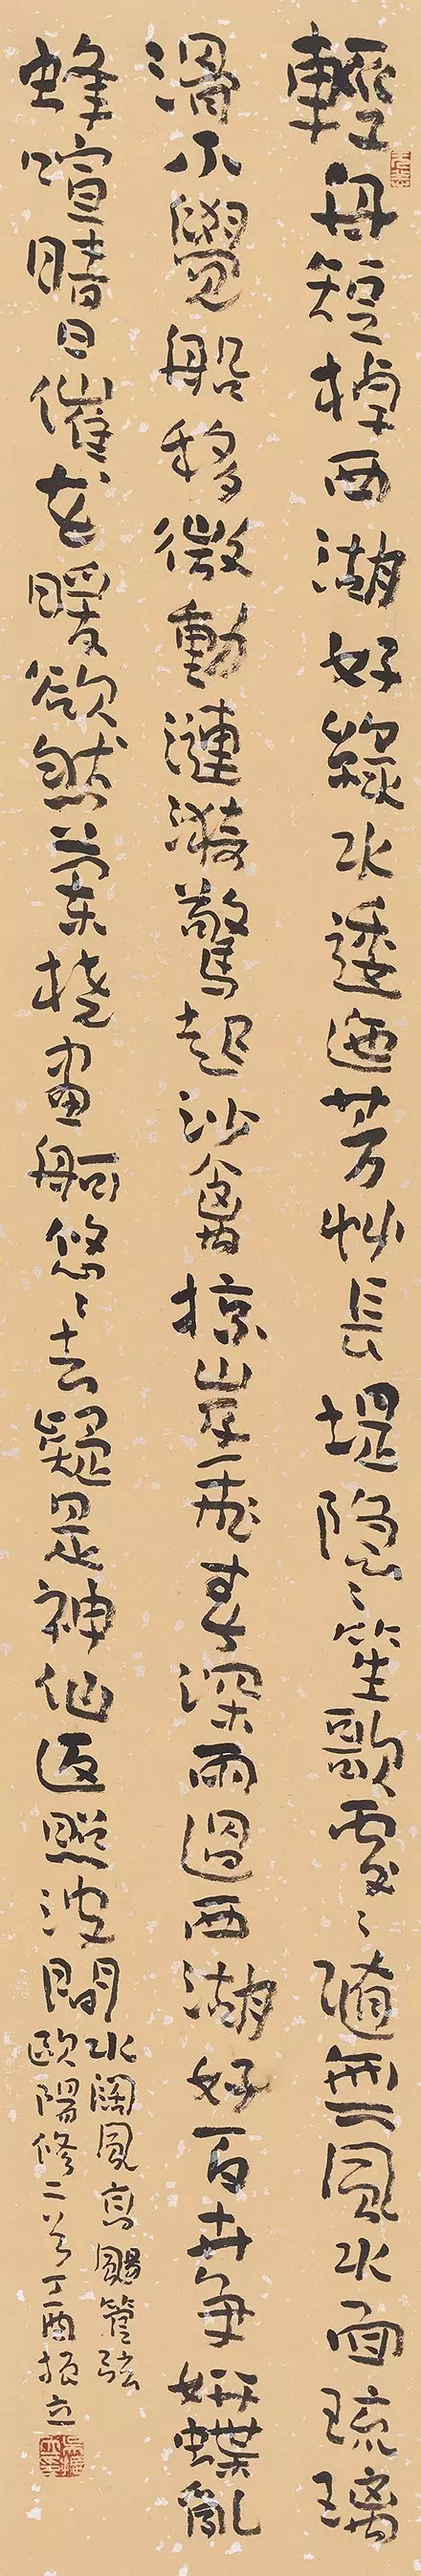 輕舟短棹西湖好綠水逶迤芳艸長堤隱〻笙歌處〻隨無風水面琉璃
滑不覺船移微動漣漪驚起沙禽掠岸飛春深雨過西湖好百卉爭妍蝶亂
蜂喧晴日催花暖欲然蘭橈畫舸悠〻去疑是神仙返照波間
水闊風高颺管弦
歐陽修二首丁酉振立